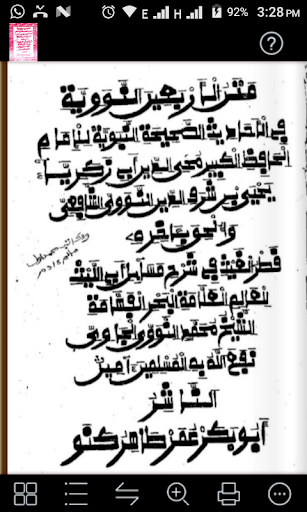 E H 92% 3:28 PM
متن الأربعين النووية
في الأحاديث الصحيحة النبوية للإمام
الحافظ الكبير محي الدين أبي زكرياء
يحيى بن شرف الدين النووي الشافعي
والحق بآخره
قطر الغيث في شرح مسائل أبي الليث
للعالم العلامة البحر الفهامة
الشيخ محمد النووي الجاوي
نفع الله به المسلمين آمين
الناشر
أبوبكر عمر طاهر كنو